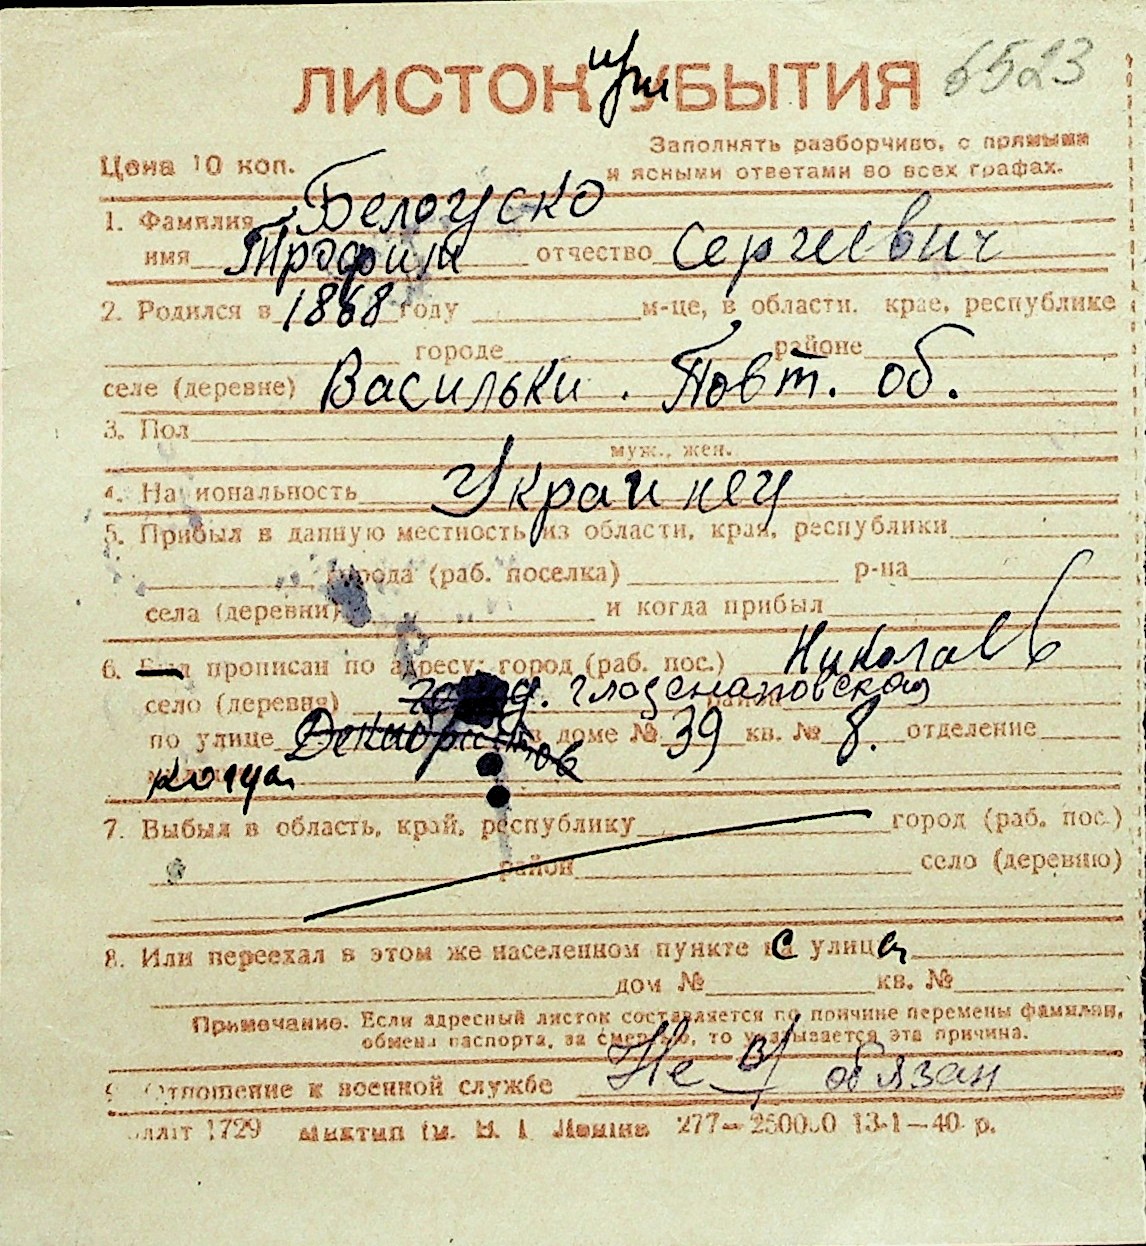 ЛИСТОК УБЫТИЯ
при
6523
Цена 10 коп.
Заполнять разборчиво, с прямыми
и ясными ответами во всех графах.
1. Фамилия Белоуско
имя Трофим отчество Сергиевич
2. Родился в 1868 году м-це, в области, крае, республике
городе районе
селе (деревне) Васильки. Повт. об.
3. Пол
муж., жен.
4. Национальность Украинец
5. Прибыл в данную местность из области, края, республики
города (раб. поселка) р-на
села (деревни) и когда прибыл
6. Был прописан по адресу: город (раб. пос.) Николаев
село (деревня) район
по улице Декабристов в доме № 39 кв. № 8. отделение
7. Выбыл в область, край, республику город (раб. пос.)
район село (деревню)
8. Или переехал в этом же населенном пункте с улицы
дом № кв. №
Примечание. Если адресный листок составляется по причине перемены фамилии,
обмена паспорта, за смертью, то указывается эта причина.
9. Отношение к военной службе Не в/обязан
1729 277— 13-1—40 р.